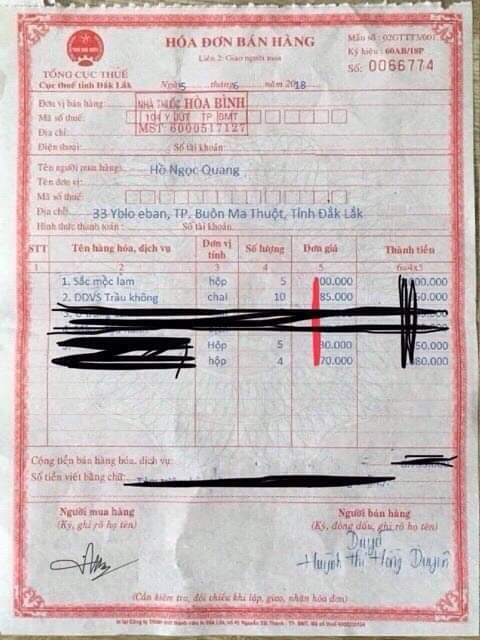 HÓA ĐƠN BÁN HÀNG
Liên 2: Giao người mua
Mẫu số: 02GTTT3/001
Ký hiệu: 60AB/18P
Số: 0066774
TỔNG CỤC THUẾ
Cục thuế tỉnh Đắk Lắk
Ngày 5 tháng 6 năm 2018
Đơn vị bán hàng: NHÀ THUỐC HÒA BÌNH
Mã số thuế: 104 Y JÚT TP BMT
Địa chỉ: MST 6000517127
Điện thoại: Số tài khoản:
Tên người mua hàng: Hồ Ngọc Quang
Tên đơn vị:
Mã số thuế:
Địa chỉ: 33 Yblo eban, TP. Buôn Ma Thuột, Tỉnh Đắk Lắk
Hình thức thanh toán: Số tài khoản:
STT Tên hàng hóa, dịch vụ Đơn vị tính Số lượng Đơn giá Thành tiền
1 2 3 4 5 6=4x5
1. Sắc mộc lam hộp 5 00.000 000
2. DDVS Trầu không chai 10 85.000 50.000
Hộp 5 30.000 50.000
hộp 4 70.000 80.000
Cộng tiền bán hàng hóa, dịch vụ:
Số tiền viết bằng chữ:
Người mua hàng
(Ký, ghi rõ họ tên)
Người bán hàng
(Ký, đóng dấu, ghi rõ họ tên)
Duyên
Huỳnh Thị Hồng Duyên
(Cần kiểm tra, đối chiếu khi lập, giao, nhận hóa đơn)